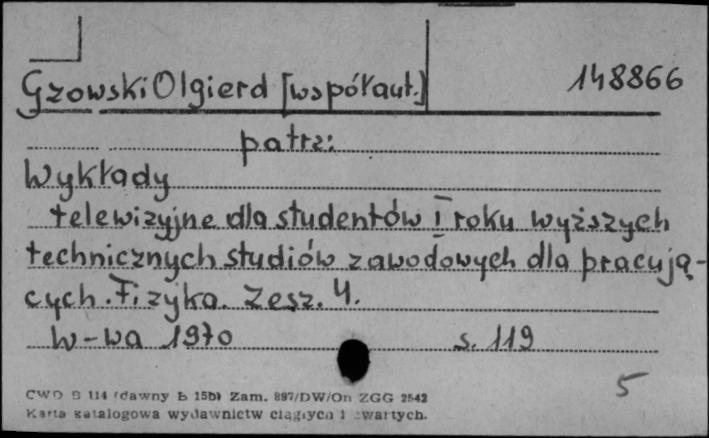 Gzowski Olgierd [współaut.] 148866
patrz:
Wykłady
telewizyjne dla studentów I roku wyższych
technicznych studiów zawodowych dla pracują-
cych. Fizyka. Zesz. 4.
W-wa 1970 s. 119
5
CWD B 114 (dawny B 15b) Zam. 897/DW/On ZGG 2542
Karta katalogowa wydawnictw ciągłych i zwartych.